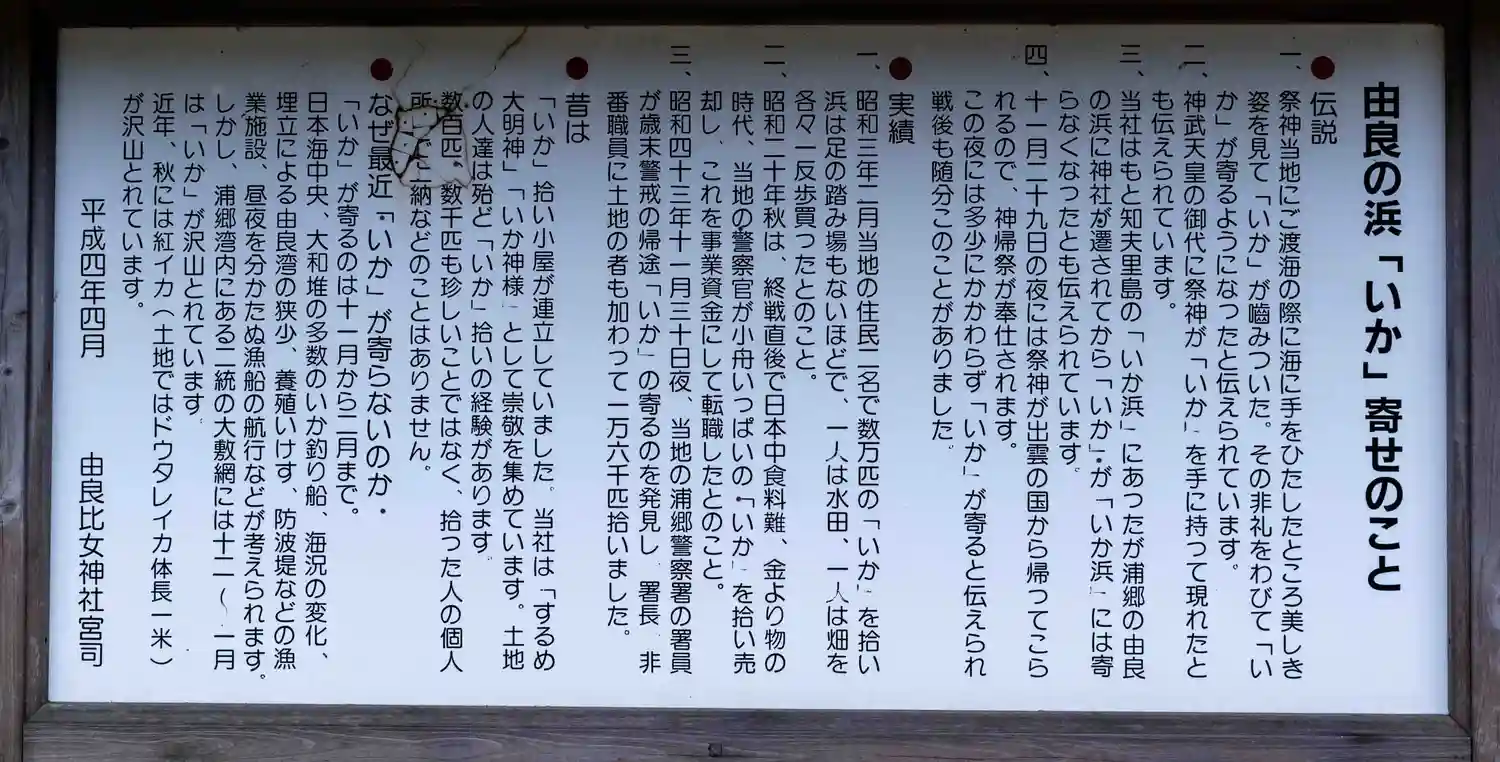 由良の浜「いか」寄せのこと
●伝説
一、祭神当地にご渡海の際に海に手をひたしたところ美しき
姿を見て「いか」が嚙みついた。その非礼をわびて「い
か」が寄るようになったと伝えられています。
二、神武天皇の御代に祭神が「いか」を手に持つて現れたと
も伝えられています。
三、当社はもと知夫里島の「いか浜」にあつたが浦郷の由良
の浜に神社が遷されてから「いか」が「いか浜」には寄
らなくなったとも伝えられています。
四、十一月二十九日の夜には祭神が出雲の国から帰ってこら
れるので、神帰祭が奉仕されます。
この夜には多少にかかわらず「いか」が寄ると伝えられ
戦後も随分このことがありました。
●実績
一、昭和三年二月当地の住民二名で数万匹の「いか」を拾い
浜は足の踏み場もないほどで、一人は水田、一人は畑を
各々一反歩買つたとのこと。
二、昭和二十年秋は、終戦直後で日本中食料難、金より物の
時代、当地の警察官が小舟いっぱいの「いか」を拾い売
却し、これを事業資金にして転職したとのこと。
三、昭和四十三年十一月三十日夜、当地の浦郷警察署の署員
が歳末警戒の帰途「いか」の寄るのを発見し、署長、非
番職員に土地の者も加わって一万六千匹拾いました。
●昔は
「いか」拾い小屋が連立していました。当社は「するめ
大明神」「いか神様」として崇敬を集めています。土地
の人達は殆ど「いか」拾いの経験があります。
数百匹、数千匹も珍しいことではなく、拾った人の個人
所 納などのことはありません。
●なぜ最近「いか」が寄らないのか
「いか」が寄るのは十一月から二月まで。
日本海中央、大和堆の多数のいか釣り船、海況の変化、
埋立による由良湾の狭少、養殖いけす、防波堤などの漁
業施設、昼夜を分かたぬ漁船の航行などが考えられます。
しかし、浦郷湾内にある二統の大敷網には十二〜一月
は「いか」が沢山とれています。
近年、秋には紅イカ（土地ではドウタレイカ体長一米）
が沢山とれています。
平成四年四月　由良比女神社宮司